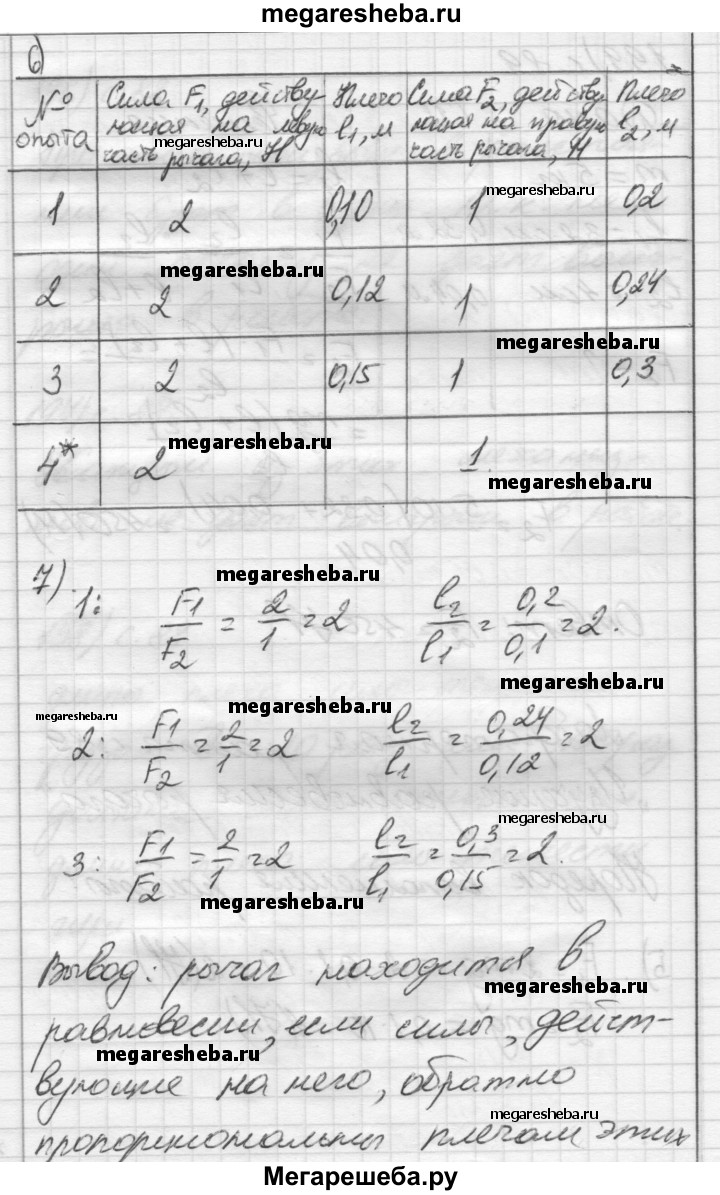 megaresheba.ru
6)
№ опыта | Сила F1, действующая на левую часть рычага, Н | Плечо l1, м | Сила F2, действующая на правую часть рычага, Н | Плечо l2, м
megaresheba.ru
1 | 2 | 0,10 | 1 | 0,2
megaresheba.ru
megaresheba.ru
2 | 2 | 0,12 | 1 | 0,24
megaresheba.ru
3 | 2 | 0,15 | 1 | 0,3
megaresheba.ru
4* | 2 | | 1
megaresheba.ru
7).
megaresheba.ru
1: F1/F2 = 2/1 = 2 l2/l1 = 0,2/0,1 = 2.
megaresheba.ru
megaresheba.ru
megaresheba.ru
2: F1/F2 = 2/1 = 2 l2/l1 = 0,24/0,12 = 2
megaresheba.ru
3: F1/F2 = 2/1 = 2 l2/l1 = 0,3/0,15 = 2.
megaresheba.ru
Вывод: рычаг находится в
megaresheba.ru
равновесии, если силы, дейст-
megaresheba.ru
вующие на него, обратно
megaresheba.ru
пропорциональны плечам этих
Мегарешеба.ру